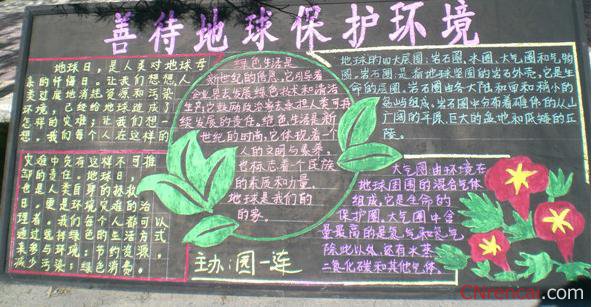 善待地球保护环境
地球日，是人类对地球母
亲的忏悔日。让我们想想人
类过度地消耗资源和污染
环境，已经给地球造成了
怎样的灾难；让我们想一
想，我们每个人在这样的
灾难中负有这样不可推
卸的责任。地球日，
也是人类自身的拯救
日，更是环境灾难的治
理者。我们每个人都可以
通过选择绿色的生活方式
来参与环境：节约资源
减少污染；绿色消费。
绿色生活是
新世纪的信息，它引导着
企业界去发展绿色技术和清洁
生产，它鼓励政治家去承担人类可持
续发展的责任。绿色生活是新
世纪的时尚，它体现着一个
人的文明与素养，
也标志着个民族
的素质和力量。
地球是我们的
的家。
主办：园一连
地球的四大层圈：岩石圈，水圈，大气圈和气物
圈。岩石圈：是指地球坚固的岩石外壳，它是生
命的层圈。岩石圈由各大陆和面积稍小的
岛屿组成，岩石圈中分布着雄伟的山
广阔的平原，巨大的盆地和低矮的丘
陵。
大气圈由环境在
地球周围的混合气体
组成，它是生命的
保护圈，大气圈中含
量最高的是氮气和氧气
除此以外，还有水蒸
二氧化碳和其他气体。
CNrencai.com